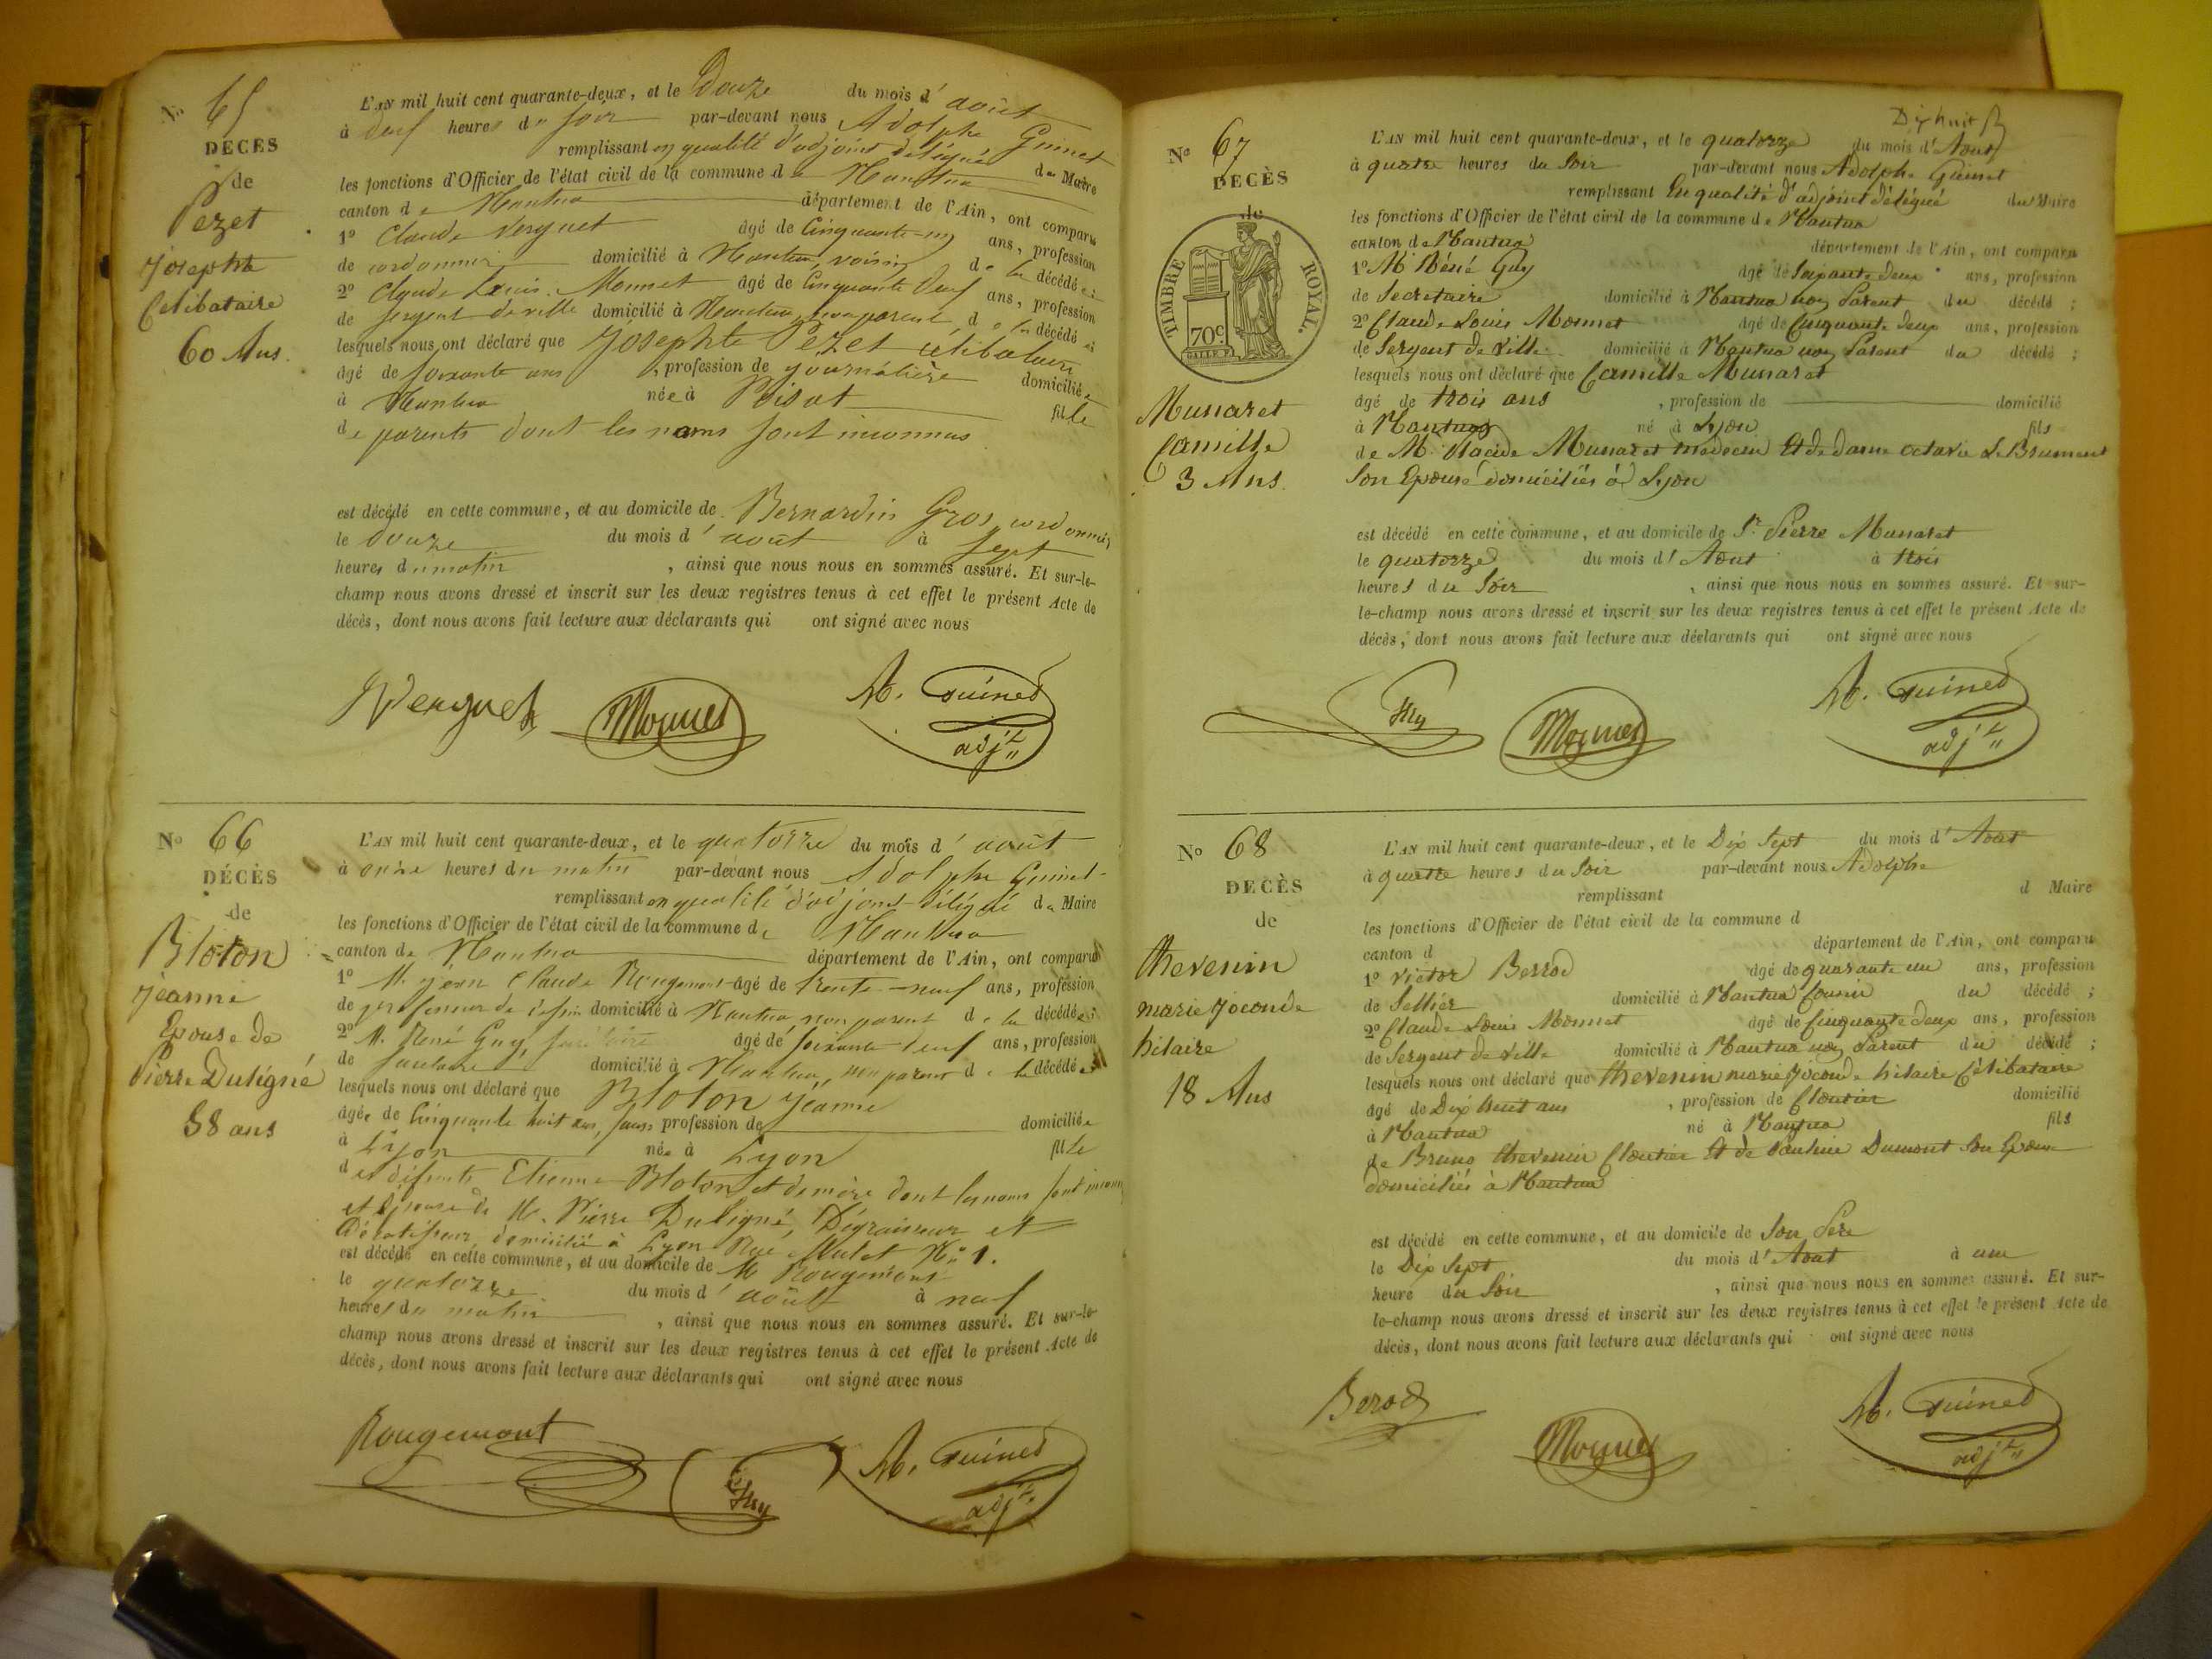 N° 65
DÉCÈS
de
Pezet
Josephte
Celibataire
60 Ans.
L'AN mil huit cent quarante-deux, et le Douze du mois d'août
à deux heures du soir par-devant nous Adolphe Guinet
remplissant en qualité d'adjoint délégué du Maire
les fonctions d'Officier de l'état civil de la commune de Nantua
canton de Nantua département de l'Ain, ont comparu
1° Claude Verguet âgé de Cinquante-un ans, profession
de cordonnier domicilié à Nantua, voisin de la décédée ;
2° Claude Louis Monnet âgé de Cinquante deux ans, profession
de sergent de ville domicilié à Nantua, non parent de la décédée ;
lesquels nous ont déclaré que Josephte Pezet célibataire
âgé de soixante ans, profession de journalière domiciliée
à Nantua née à Poisat fille
de parents dont les noms sont inconnus
est décédé en cette commune, et au domicile de Bernardin Gros, cordonnier
le douze du mois d'août à sept
heures du matin, ainsi que nous nous en sommes assuré. Et sur-le-
champ nous avons dressé et inscrit sur les deux registres tenus à cet effet le présent Acte de
décès, dont nous avons fait lecture aux déclarants qui ont signé avec nous
Verguet Monnet A. Guinet
adjt
N° 66
DÉCÈS
de
Bloton
Jeanne
Epouse de
Pierre Duligné
58 ans
L'AN mil huit cent quarante-deux, et le quatorze du mois d'août
à onze heures du matin par-devant nous Adolphe Guinet
remplissant en qualité d'adjoint délégué du Maire
les fonctions d'Officier de l'état civil de la commune de Nantua
canton de Nantua département de l'Ain, ont comparu
1° M. Jean Claude Rougemont âgé de trente-neuf ans, profession
de domicilié à Nantua non parent de la décédée ;
2° M. René Guy, âgé de soixante deux ans, profession
de domicilié à Nantua, non parent de la décédée
lesquels nous ont déclaré que Bloton Jeanne
âgée de Cinquante huit ans, sans profession de domiciliée
à Lyon née à Lyon fille
des défunts Etienne Bloton et de mère dont les noms sont inconnus
et épouse de M. Pierre Duligné, Dégraisseur et
domicilié à Lyon Rue Mulet N° 1.
est décédé en cette commune, et au domicile de M Rougemont
le quatorze du mois d'août à neuf
heures du matin, ainsi que nous nous en sommes assuré. Et sur-le-
champ nous avons dressé et inscrit sur les deux registres tenus à cet effet le présent Acte de
décès, dont nous avons fait lecture aux déclarants qui ont signé avec nous
Rougemont Guy A. Guinet
adjt
Dix huit
N° 67
DÉCÈS
de
TIMBRE ROYAL.
70c
Munaret
Camille
3 Ans.
L'AN mil huit cent quarante-deux, et le quatorze du mois d'Aout
à quatre heures du Soir par-devant nous Adolphe Guinet
remplissant En qualité d'adjoint délégué du Maire
les fonctions d'Officier de l'état civil de la commune de Nantua
canton de Nantua département de l'Ain, ont comparu
1° M Réné Guy âgé de Soixante deux ans, profession
de Secretaire domicilié à Nantua non Parent du décédé ;
2° Claude Louis Monnet âgé de Cinquante deux ans, profession
de Sergent de Ville domicilié à Nantua non Parent du décédé ;
lesquels nous ont déclaré que Camille Munaret
âgé de trois ans, profession de domicilié
à Nantua né à Lyon fils
de M. Placide Munaret médecin Et de dame octavie Le Brument
Son Epouse domiciliés à Lyon
est décédé en cette commune, et au domicile de Sr Pierre Munaret
le quatorze du mois d'Aout à trois
heures du Soir, ainsi que nous nous en sommes assuré. Et sur-
le-champ nous avons dressé et inscrit sur les deux registres tenus à cet effet le présent Acte de
décès, dont nous avons fait lecture aux déclarants qui ont signé avec nous
Guy Monnet A. Guinet
adjt
N° 68
DECÈS
de
thevenin
marie Joconde
hilaire
18 Ans
L'AN mil huit cent quarante-deux, et le Dix Sept du mois d'Aout
à quatre heures du Soir par-devant nous Adolphe
remplissant d Maire
les fonctions d'Officier de l'état civil de la commune d
canton d département de l'Ain, ont comparu
1° Victor Berrod âgé de quarante un ans, profession
de Sellier domicilié à Nantua Cousin du décédé ;
2° Claude Louis Monnet âgé de Cinquante deux ans, profession
de Sergent de Ville domicilié à Nantua non Parent du décédé ;
lesquels nous ont déclaré que thevenin marie Joconde hilaire Célibataire
âgé de Dix huit ans, profession de Cloutier domicilié
à Nantua né à Nantua fils
de Bruno thevenin Cloutier Et de Pauline Dumont Son Epouse
domiciliés à Nantua
est décédé en cette commune, et au domicile de Son Père
le Dix Sept du mois d'Aout à une
heure du Soir, ainsi que nous nous en sommes assuré. Et sur-
le-champ nous avons dressé et inscrit sur les deux registres tenus à cet effet le présent Acte de
décès, dont nous avons fait lecture aux déclarants qui ont signé avec nous
Berod Monnet A. Guinet
adjt